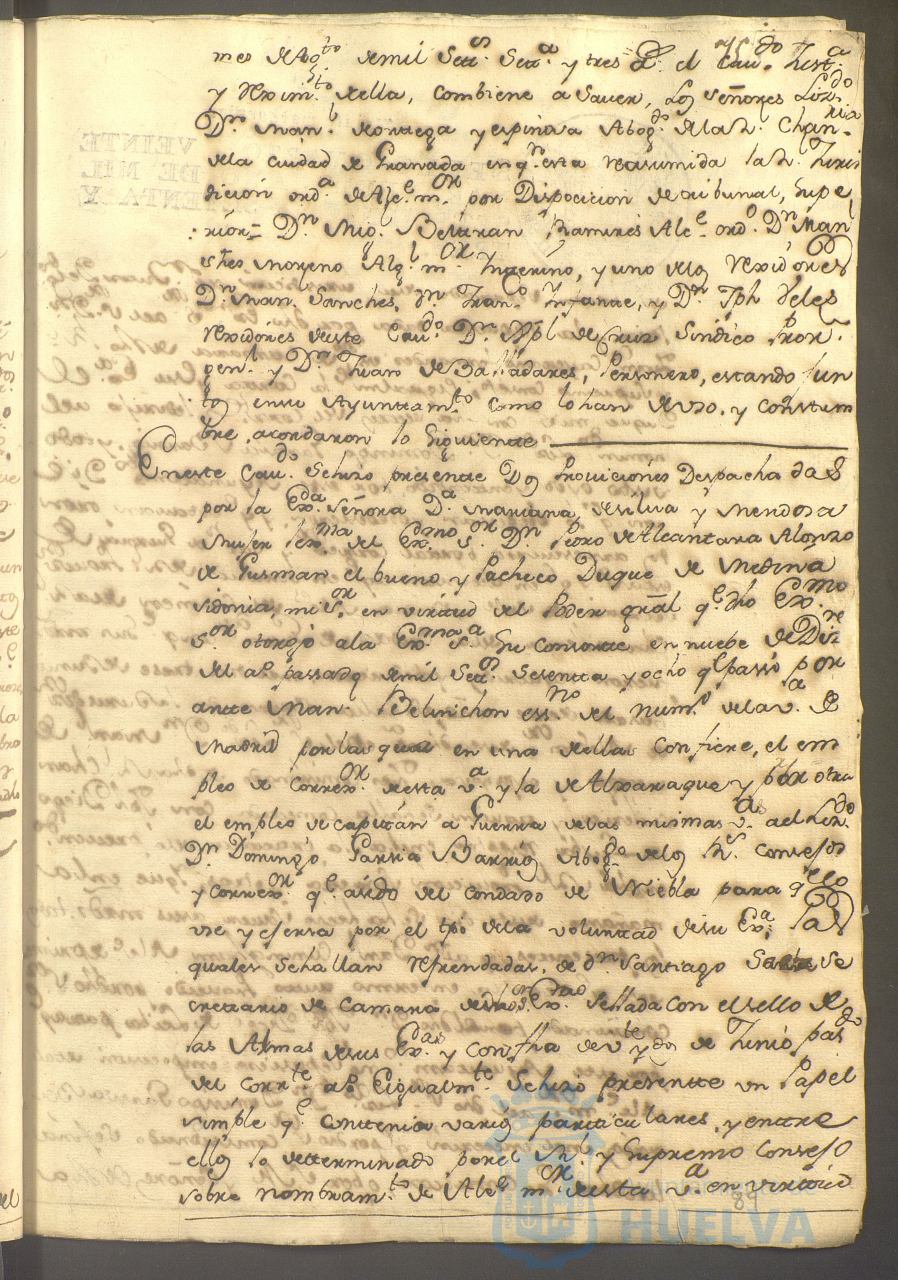 75
mes de Ag.to de mil Set.s Set.a y tres a.s el Cav.do Just.a
y Reximt.o della, combiene a saver, Los señores Liz.do
D.n Man.l de ortega y espinosa Abog.do de la R. Chan.ria
de la ciudad de Granada en q.n esta reasumida la R. Juris
dicion ord.a de Alc.e m.or por Disposicion de tribunal, supe
rior= D.n Mig.l Beltran Ramires Alc.e ord.o D.n Man
Moreno Alg.l m.or Interino, y uno de los Rexidores
D.n Man.l Sanches, d.n Fran.co Infante, y D.n Jph Veles
Rexidores deste Cav.do D.n de Cruz Sindico Pror.
gen.l y D.n Juan de Balladares, Personero, estando jun
tos en su Ayuntam.to como lo han de uso, y costum
bre, acordaron lo siguiente
En este Cav.do Se hizo presente Dos Proviciones Despachadas
por la Ex.da señora D.a Mariana de silva y Mendosa
Muger lex.ma del Ex.mo S.or D.n Pedro de Alcantara Alonzo
de Gusman el bueno y Pacheco Duque de Medina
sidonia, mi S.or en virtud del Poder gral q.e dho Ex.mo
S.or otorgó a la Ex.ma S.a su consorte en nuebe de Diz.re
del a.o passado de mil Set.s Sesentta y ocho q.e passó por
antte Man.l Belinchon ess.no del Num.o de la v.a de
Madrid por las que en una dellas Confiere, el em
pleo de Correx.or desta v.a y la de Alxaraque y por otra
el empleo de capitán a Guerra de las mismas v.as al Liz.do
D.n Domingo Garsia Barrios Abog.do de los R.s consejos
y Correx.or q.e a sido del Condado de Niebla para q.e los
use y eserza por el tpo de la voluntad de su Ex.a Las
quales se hallan refrendadas, de d.n Santiago Se
cretario de Camara de dhos S.res Ex.mos Sellada con el sello de
las Armas de sus Ex.as y con fha de v.te y dos de Junio pas.do
del Corr.te a.o Eigualm.te Se hizo presentte un Papel
simple q.e conttenia varios particulares, y enttre
ellos lo detterminado por el R.l y Supremo Consejo
sobre nombram.to de Alc.e m.or desta v.a en virtud
89
HUELVA